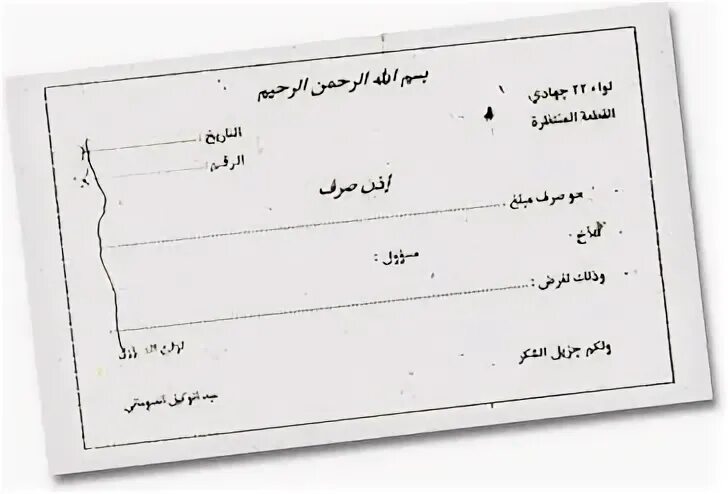 بسم الله الرحمن الرحيم
لواء ٢٢ جهادي
القطعة المنتظرة
التاريخ :
الرقم :
إذن صرف
صرف مبلغ
للأخ
مسؤول :
وذلك لغرض :
ولكم جزيل الشكر